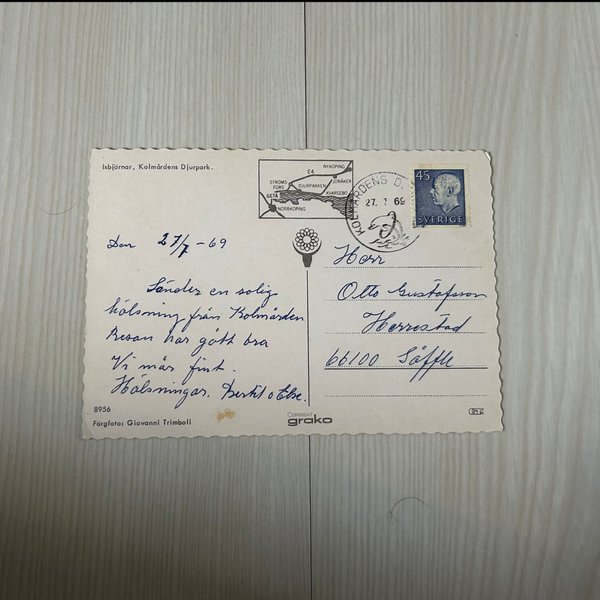 Isbjörnar, Kolmårdens Djurpark.
NYKÖPING
E4
STRÖMS
FORS
JONÅKER
DJURPARKEN
KVARSEBO
GETÅ
NORRKÖPING
KOLMÅRDENS
27. 7 69
45
SVERIGE
Den 27/7 - 69
Sänder en solig
hälsning från Kolmården
Resan har gått bra
Vi mår fint.
Hälsningar. Bertil o Else.
Herr
Otto Gustafsson
Herrestad
66100 Säffle
8956
Färgfoto: Giovanni Trimboli
COPYRIGHT
grako